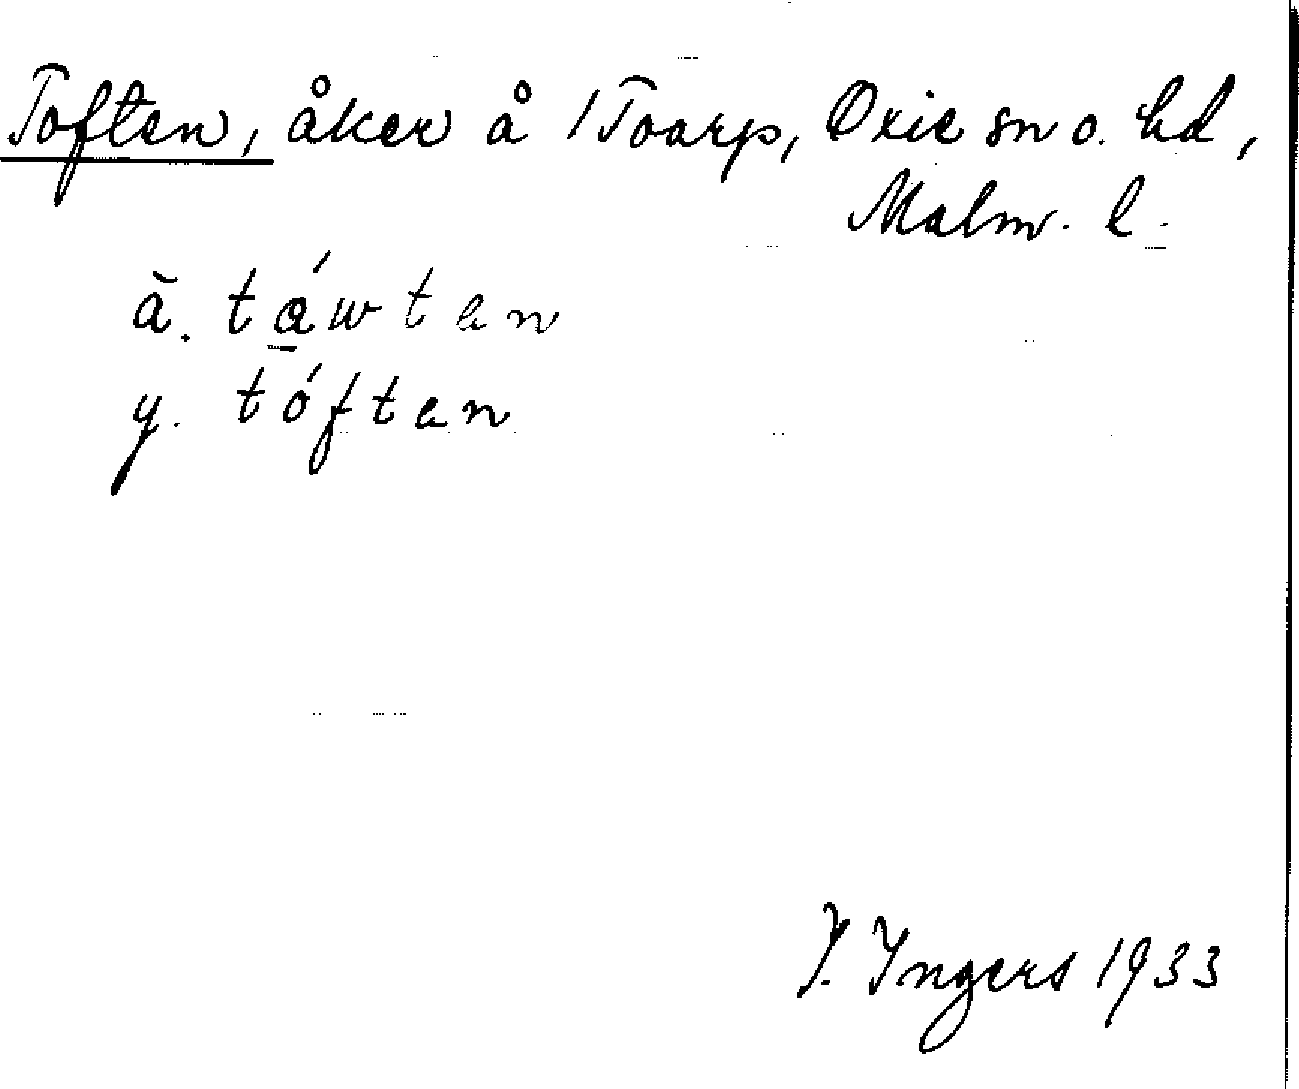 Toften, åker å 1 Toarp, Oxie sn o. hd,
Malm. l.
ä. táwten
y. tóften
I. Ingers 1933